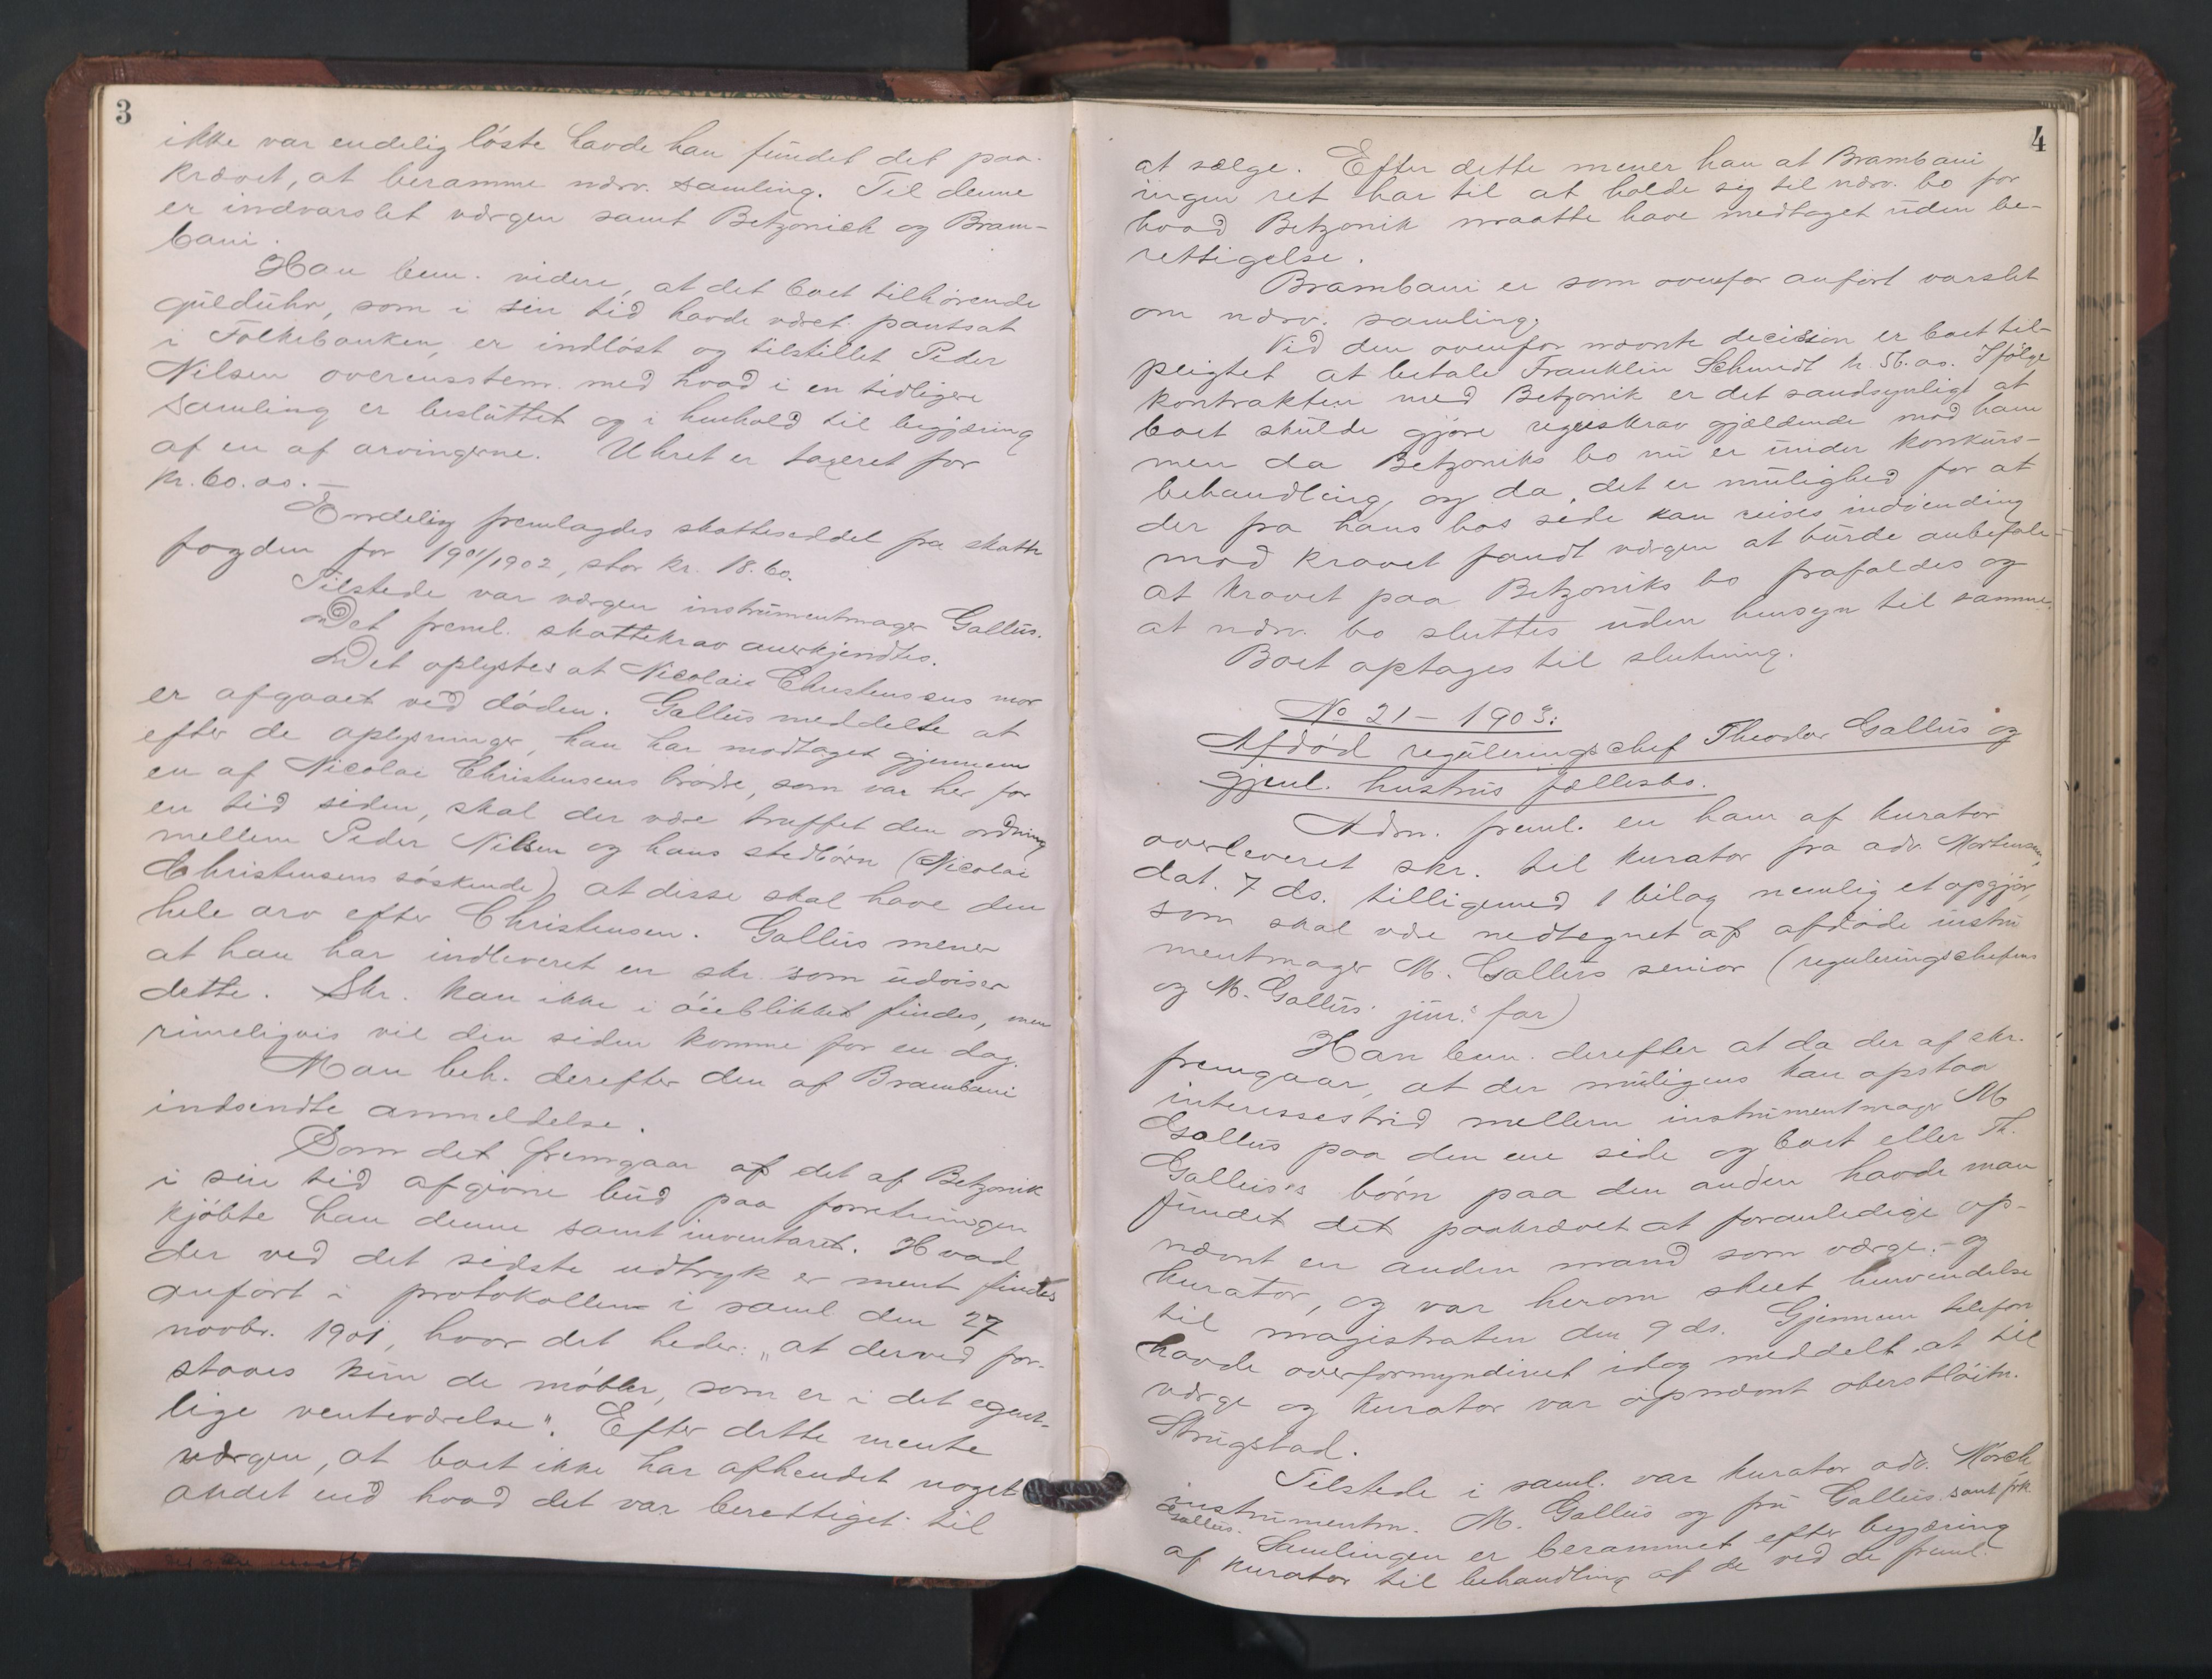 3
ikke var endelig løste havde han fundet det paa-
krævet, at beramme nærv. samling. Til denne
er indvarslet værgen samt Betzonich og Bram-
bani.
Han bem. videre, at det boet tilhørende
gulduhr, som i sin tid havde været pantsat
i Folkebanken, er indløst og tilstillet Peder
Nilsen overensstem. med hvad i en tidligere
samling er besluttet og i henhold til begjæring
af en af arvingerne. Uhret er taxeret for
kr. 60.00.—
Endelig fremlagdes skatteseddel fra skatte
fogden for 1901/1902, stor kr. 18.60.
Tilstede var værgen instrumentmager Gallus.
Det freml. skattekrav anerkjendtes.
Det oplystes at Nicolai Christensens mor
er afgaaet ved døden. Gallus meddelte at
efter de oplysninger, han har modtaget gjennem
en af Nicolai Christensens brødre, som var her for
en tid siden, skal der være truffet den ordning
mellem Peder Nilsen og hans stedbørn (Nicolai
Christensens søskende) at disse skal have den
hele arv efter Christensen. Gallus mener
at han har indleveret en skr. som udviser
dette. Skr. kan ikke i øieblikket findes, men
rimeligvis vil den siden komme for en dag.
Man beh. derefter den af Brambani
indsendte anmeldelse.
Som det fremgaar af det af Betzonik
i sin tid afgivne bud paa forretningen
kjøbte han denne samt inventaret. Hvad
der ved det sidste udtryk er ment findes
anført i protokollen i saml. den 27
novbr. 1901, hvor det heder: "at derved for-
staaes kun de møbler, som er i det egent-
lige venteværelse". Efter dette mente
værgen, at boet ikke har afhendet noget
andet end hvad det var berettiget til
4
at sælge. Efter dette mener han at Brambani
ingen ret har til at holde sig til nærv. bo for
hvad Betzonik maatte have medtaget uden be-
rettigelse.
Brambani er som ovenfor anført varslet
om nærv. samling.
Ved den ovenfor nævnte decision er boet til-
pligtet at betale Franklin Schmidt kr. 56.00. Ifølge
kontrakten med Betzonik er det sandsynligt at
boet skulde gjøre regreskrav gjældende mod ham
men da Betzoniks bo nu er under konkurs-
behandling, og da det er mulighed for at
der fra hans bos side kan reises indvending
mod kravet fandt værgen at burde anbefale-
at kravet paa Betzoniks bo frafaldes og
at nærv. bo sluttes uden hensyn til samme.
Boet optages til slutning.
No 21 – 1903:
Afdød reguleringschef Theodor Gallus og
gjenl. hustrus fællesbo.
Adm. freml. en ham af kurator
overleveret skr. til kurator fra adv. Mortensen,
dat. 7 ds. tilligemed 1 bilag nemlig et opgjør,
som skal være nedtegnet af afdøde instru
mentmager M. Gallus senior (reguleringschefens
og M. Gallus jun.s far)
Han bem. derefter at da der af skr.
fremgaar, at der muligens kan opstaa
interessestrid mellem instrumentmager M
Gallus paa den ene side og boet eller Th.
Gallus's børn paa den anden havde man
fundet det paakrævet at foranledige op-
nævnt en anden mand som værge.- og
kurator, og var herom skeet henvendelse
til magistraten den 9 ds. Gjennem telefon
havde overformynderiet idag meddelt, at til
værge og kurator var opnævnt oberstløitn.
Strugstad.
Tilstede i saml. var kurator adv. Mørch
instrumentm. M. Gallus og fru Gallus samt frk.
Gallus.
Samlingen er berammet efter begjæring
af kurator til behandling af de ved de freml.